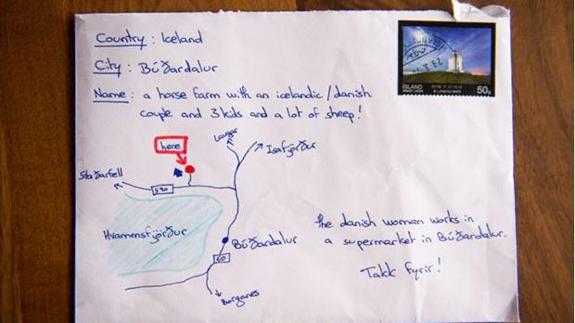 Country : Iceland
City : Búðardalur
Name : a horse farm with an icelandic/danish
couple and 3 kids and a lot of sheep!
ÍSLAND
50g
here
Laugar
Ísafjörður
Staðarfell
590
Hvammsfjörður
Búðardalur
60
Borgarnes
the danish woman works in
a supermarket in Búðardalur.
Takk fyrir!